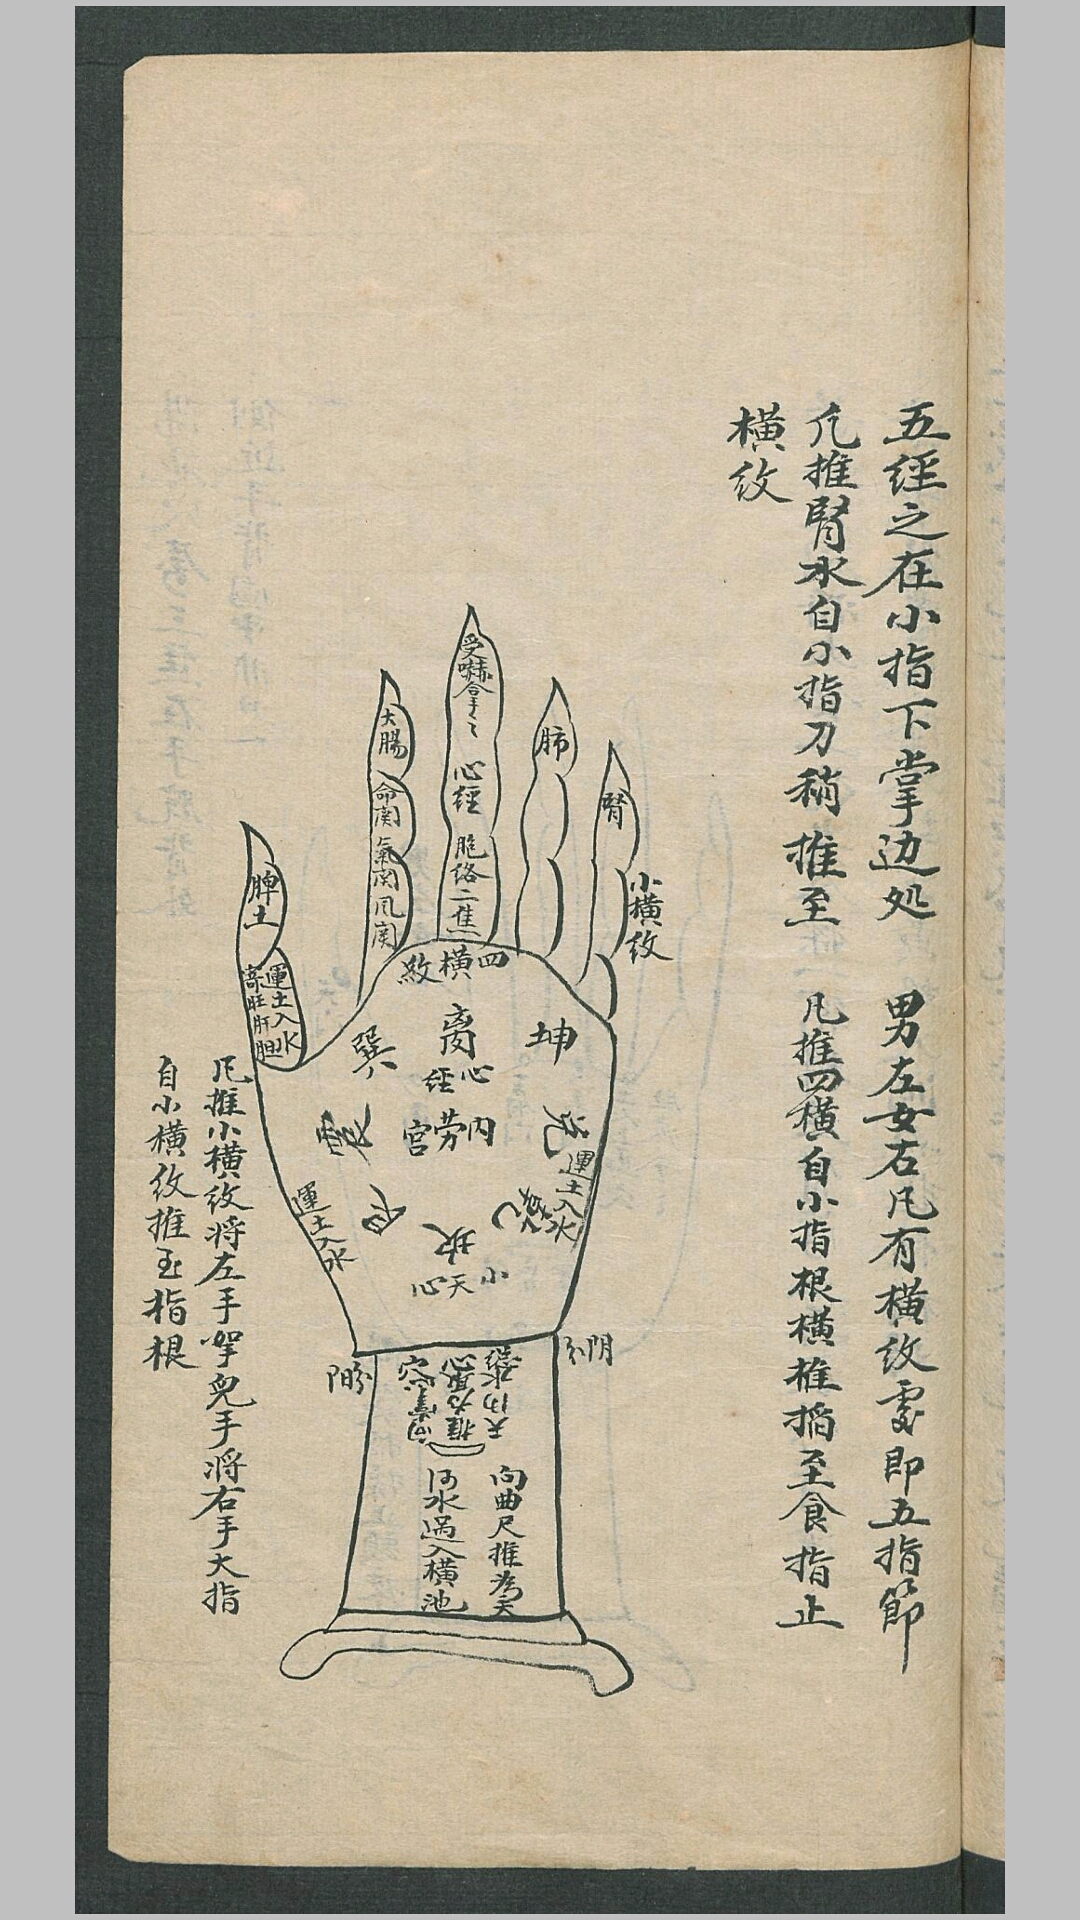 五經之在小指下掌边处　男左女右凡有横纹處即五指節
凡推腎水自小指刀稍推至　凡推四横自小指根横推掐至食指止
横纹
小横纹
腎
肺
受嚇合手之　心經　胞络二焦
大腸　命関　氣関　風関
脾土
運土入水
寄旺肝胆
四横紋
坤
离
巽
心經
内劳宫
震
兑
運土入水
乾
艮
坎
運土入水
小天心
阴
阳
推为
向曲尺推为天
河水過入横池
凡推小横纹将左手拏兒手将右手大指
自小横纹推至指根